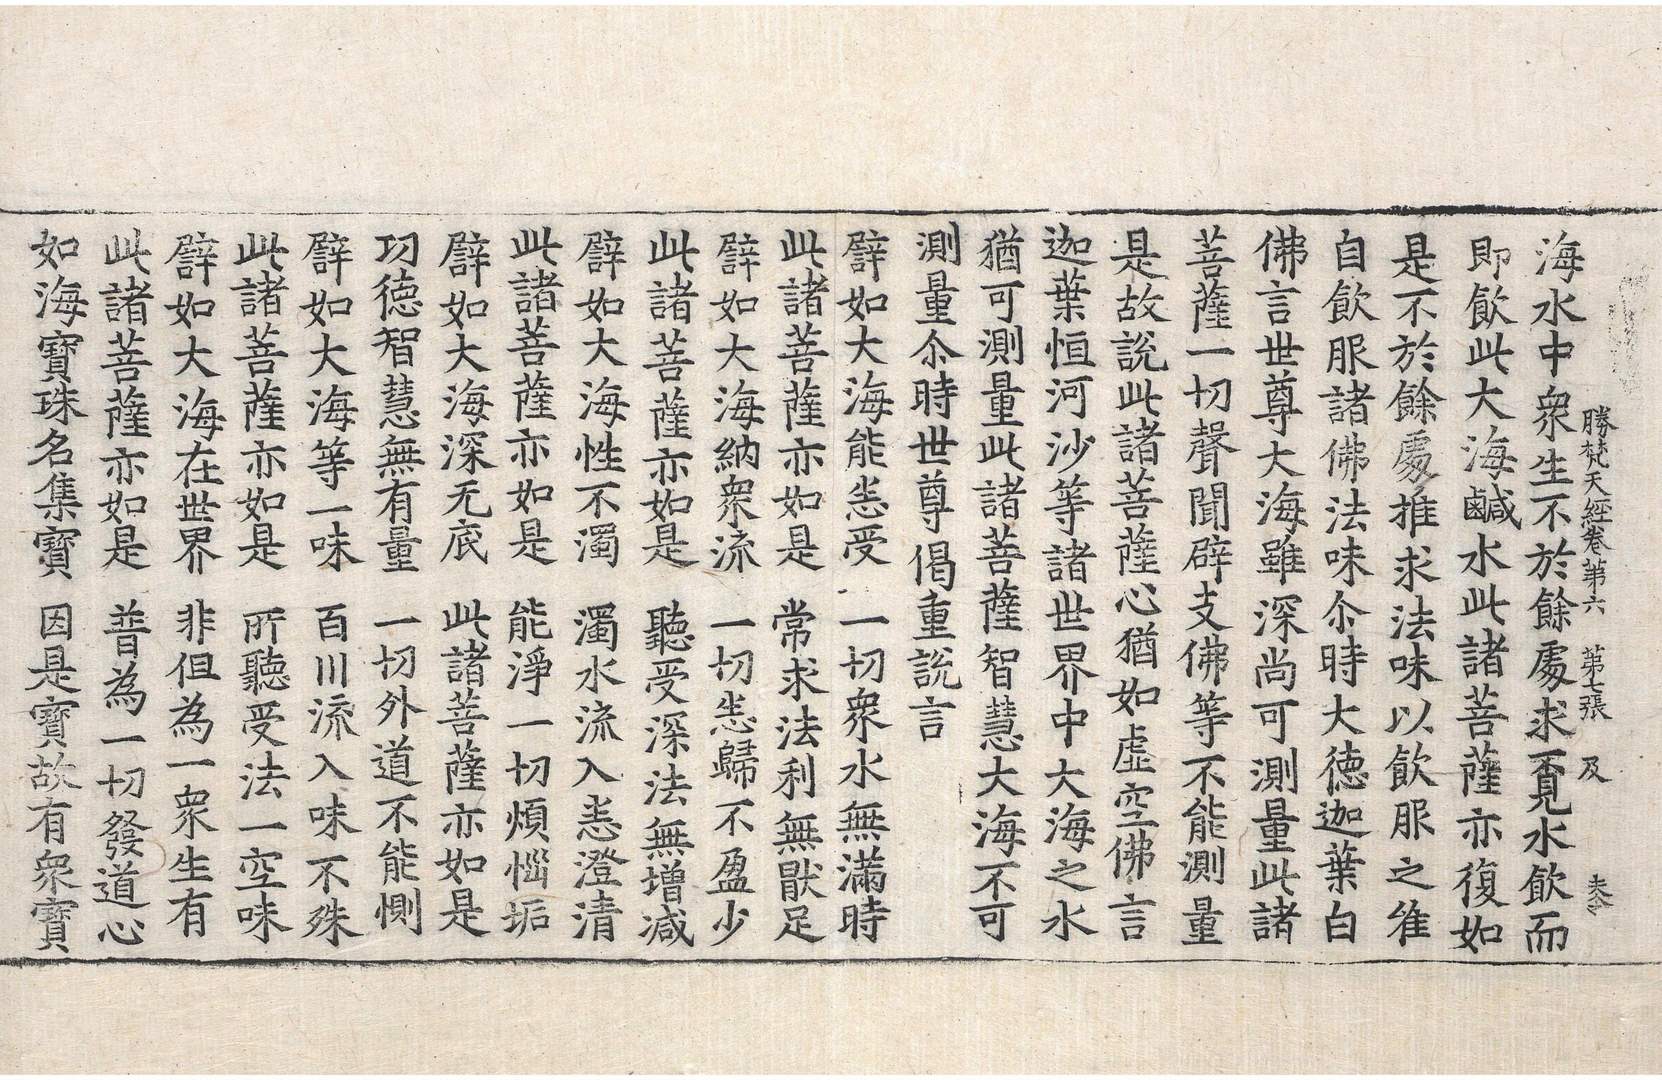 勝梵天經卷第六　第七張　及
海水中衆生不於餘處求覓水飲而
即飲此大海鹹水此諸菩薩亦復如
是不於餘處推求法味以飲服之雖
自飲服諸佛法味尒時大德迦葉白
佛言世尊大海雖深尚可測量此諸
菩薩一切聲聞辟支佛等不能測量
是故說此諸菩薩心猶如虛空佛言
迦葉恒河沙等諸世界中大海之水
猶可測量此諸菩薩智慧大海不可
測量尒時世尊偈重說言
譬如大海能悉受　一切衆水無滿時
此諸菩薩亦如是　常求法利無猒足
譬如大海納衆流　一切悉歸不盈少
此諸菩薩亦如是　聽受深法無增減
譬如大海性不濁　濁水流入悉澄清
此諸菩薩亦如是　能淨一切煩惱垢
譬如大海深无底　此諸菩薩亦如是
功德智慧無有量　一切外道不能惻
譬如大海等一味　百川流入味不殊
此諸菩薩亦如是　所聽受法一空味
譬如大海在世界　非但為一衆生有
此諸菩薩亦如是　普為一切發道心
如海寶珠名集寶　因是寶故有衆寶